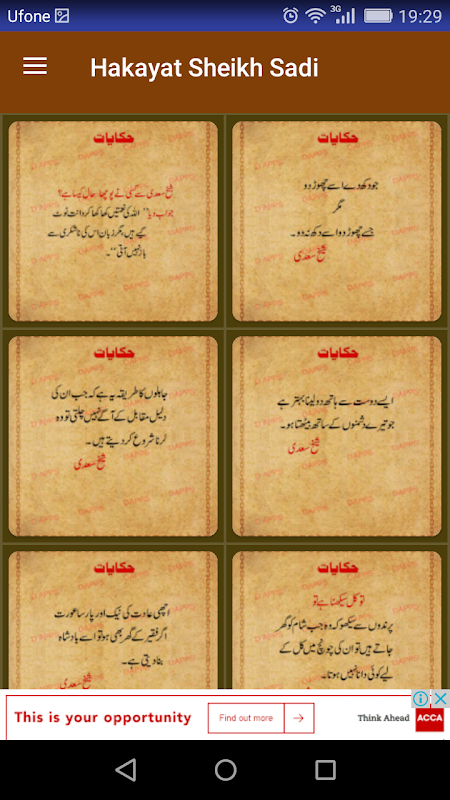 Ufone
3G
19:29
Hakayat Sheikh Sadi
حکایات
شیخ سعدی سے کسی نے پوچھا حال کیسا ہے؟
جواب دیا" اللہ کی نعمتیں کھا کھا کر دانت ٹوٹ
گئے ہیں، مگر زبان اس کی ناشکری سے
باز نہیں آتی"۔
حکایات
جو دکھ دے اسے چھوڑ دو
مگر
جسے چھوڑ دو اسے دکھ نہ دو۔
شیخ سعدی
حکایات
جاہلوں کا طریقہ یہ ہے کہ جب ان کی
دلیل مقابل کے آگے نہیں چلتی تو وہ
لڑنا شروع کر دیتے ہیں۔
شیخ سعدی
حکایات
ایسے دوست سے ہاتھ دھو لینا بہتر ہے
جو تیرے دشمنوں کے ساتھ بیٹھتا ہو۔
شیخ سعدی
حکایات
اچھی عادت کی نیک اور پارسا عورت
اگر فقیر کے گھر بھی ہو تو اسے بادشاہ
بنا دیتی ہے۔
شیخ سعدی
حکایات
توکل سیکھنا ہے تو
پرندوں سے سیکھو کہ وہ جب شام کو گھر
جاتے ہیں تو ان کی چونچ میں کل کے
لیے کوئی دانا نہیں ہوتا۔
This is your opportunity
Find out more
Think Ahead
ACCA